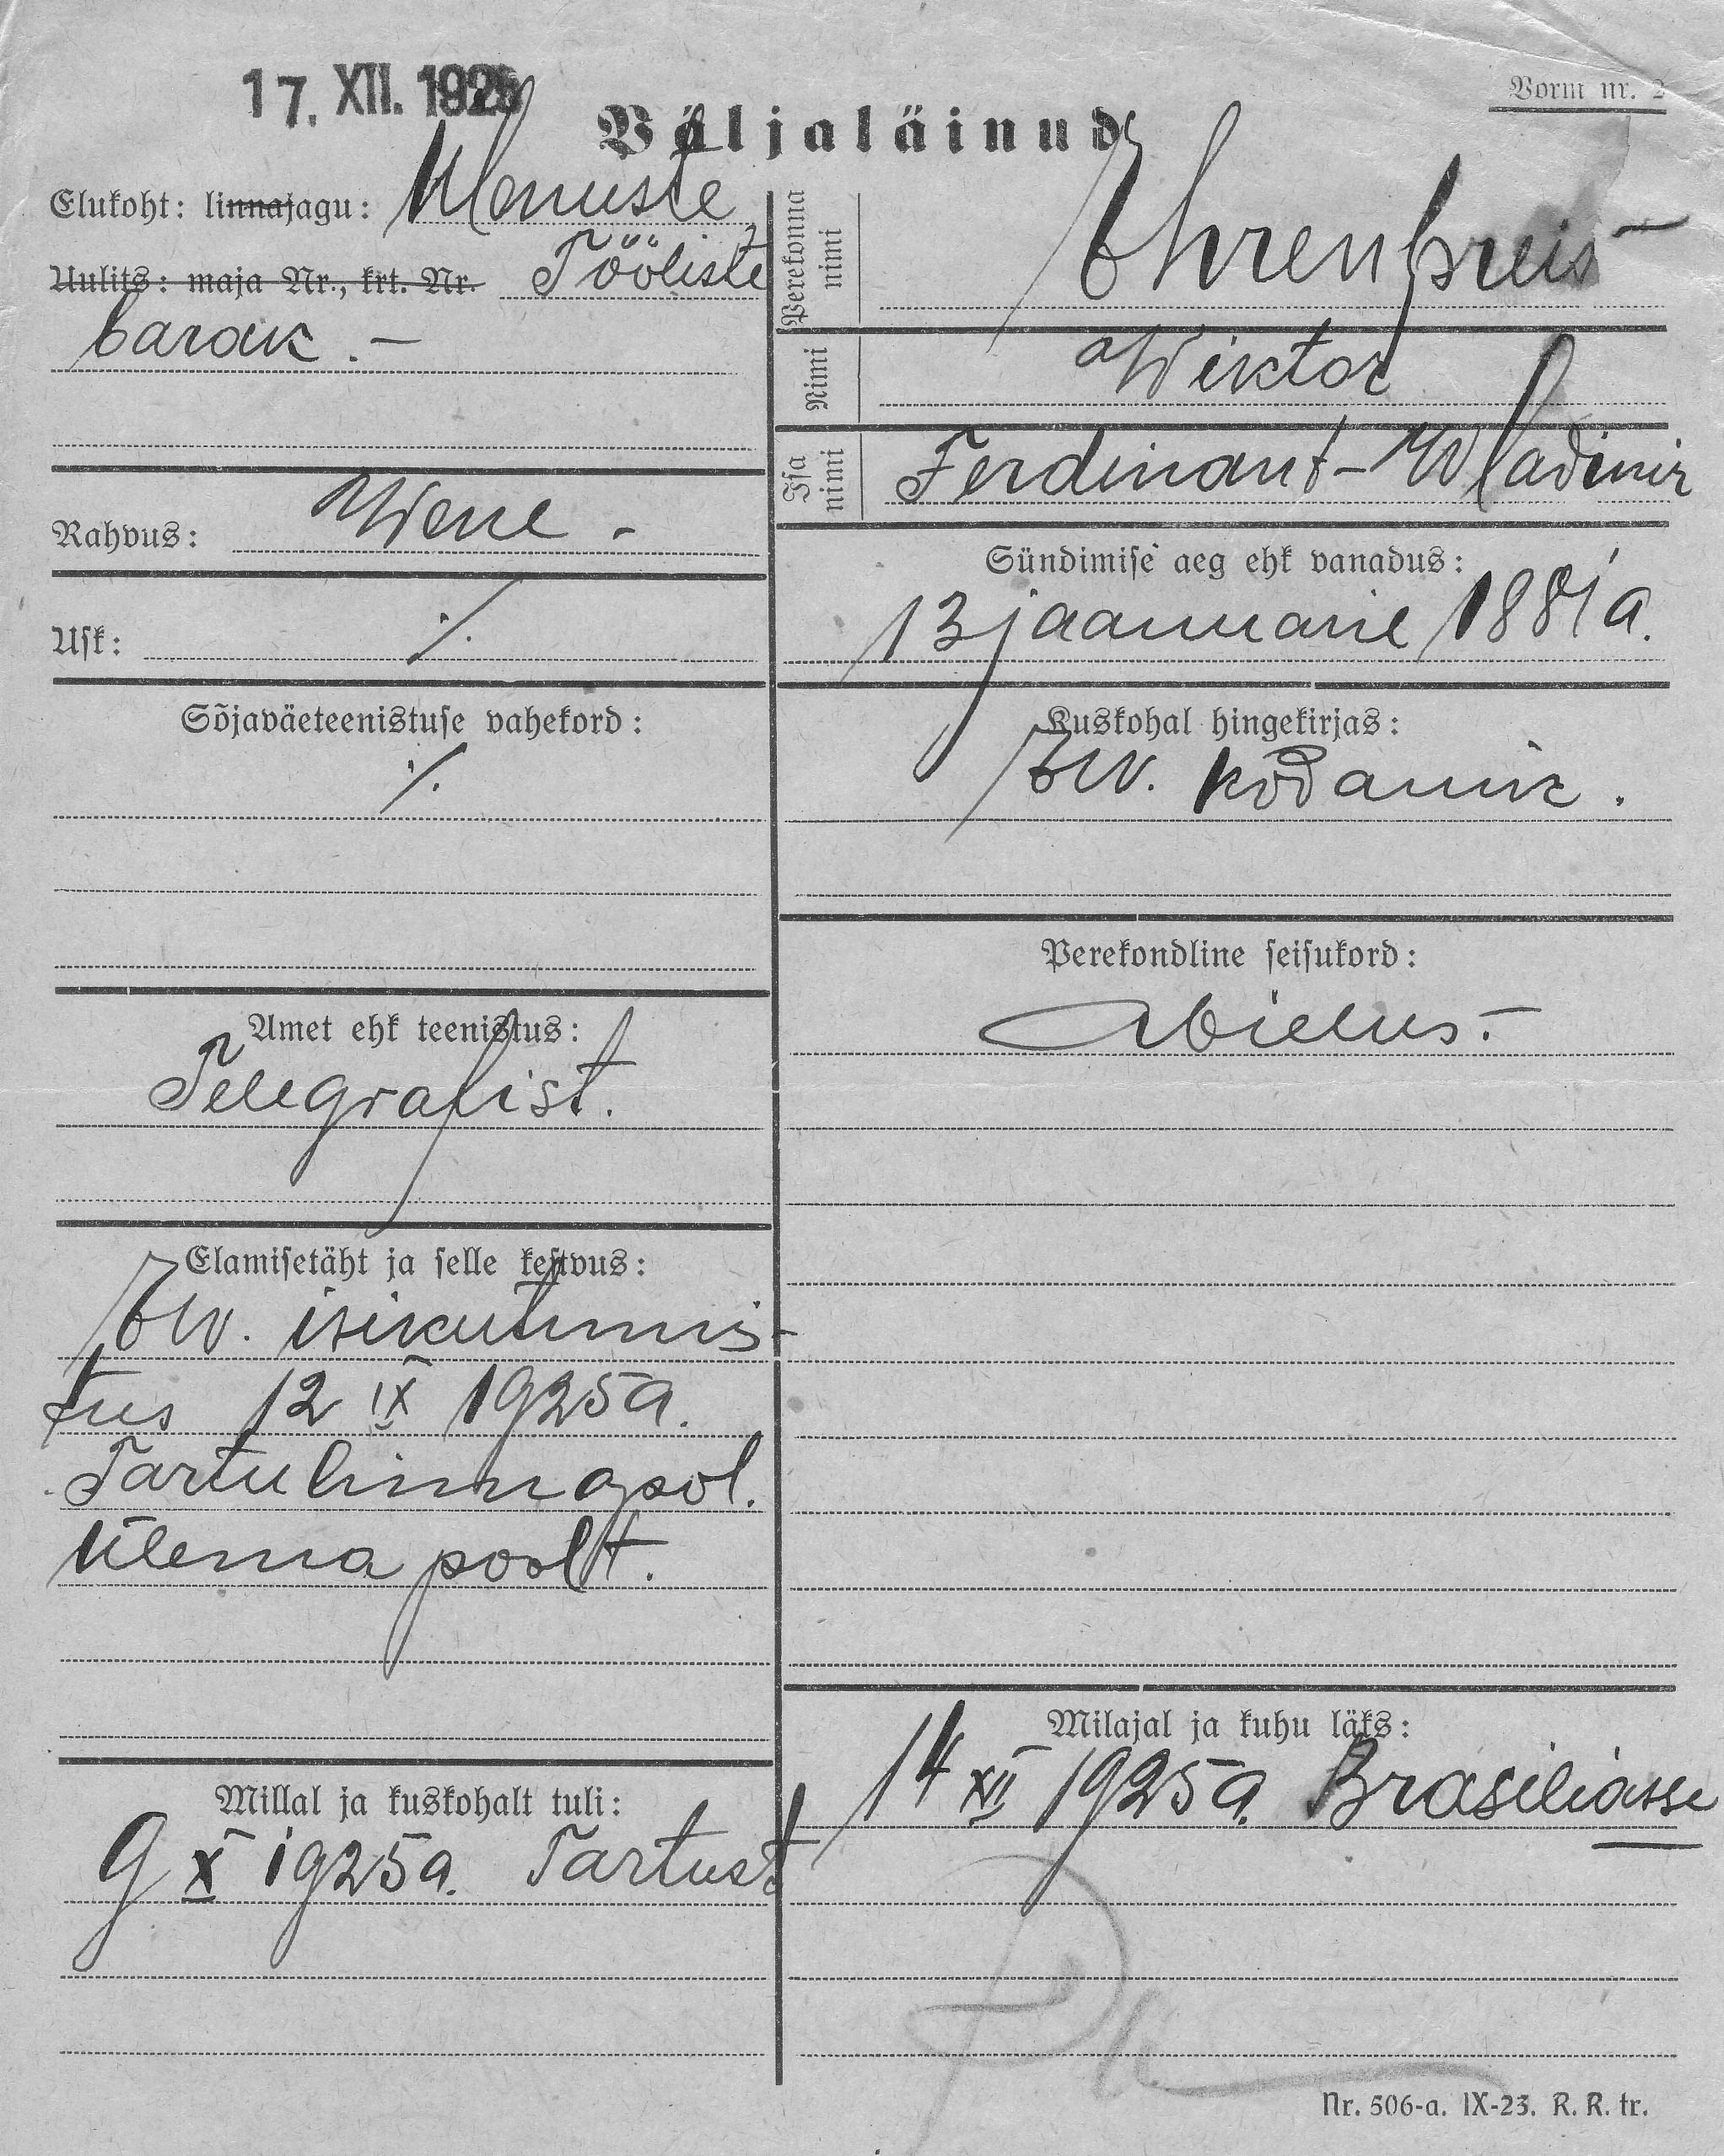 17. XII. 1925
Vorm nr. 2
Väljaläinud
Elukoht: linnajagu: Ulenuste
Uulits: maja Nr., krt. Nr. Tööliste
barak.-
Rahvus: Wene -
Usk: ./.
Sõjaväeteenistuse vahekord:
./.
Amet ehk teenistus:
Telegrafist.
Elamisetäht ja selle kestvus:
EW. isikutunnis-
tus 12 IX 1925 a.
Tartu linna pol.
Ülema poolt.
Millal ja kuskohalt tuli:
9 X 1925 a. Tartust
Perekonna nimi Ehrenpreis
Nimi Wiktor
Isa nimi Ferdinant-Wladimir
Sündimise aeg ehk vanadus:
13 jaanuaril 1881 a.
Kuskohal hingekirjas:
EW. kodanik.
Perekondline seisukord:
Abielus.-
Milajal ja kuhu läks:
14 XII 1925 a. Brasiliasse
Nr. 506-a. IX-23. R. R. tr.